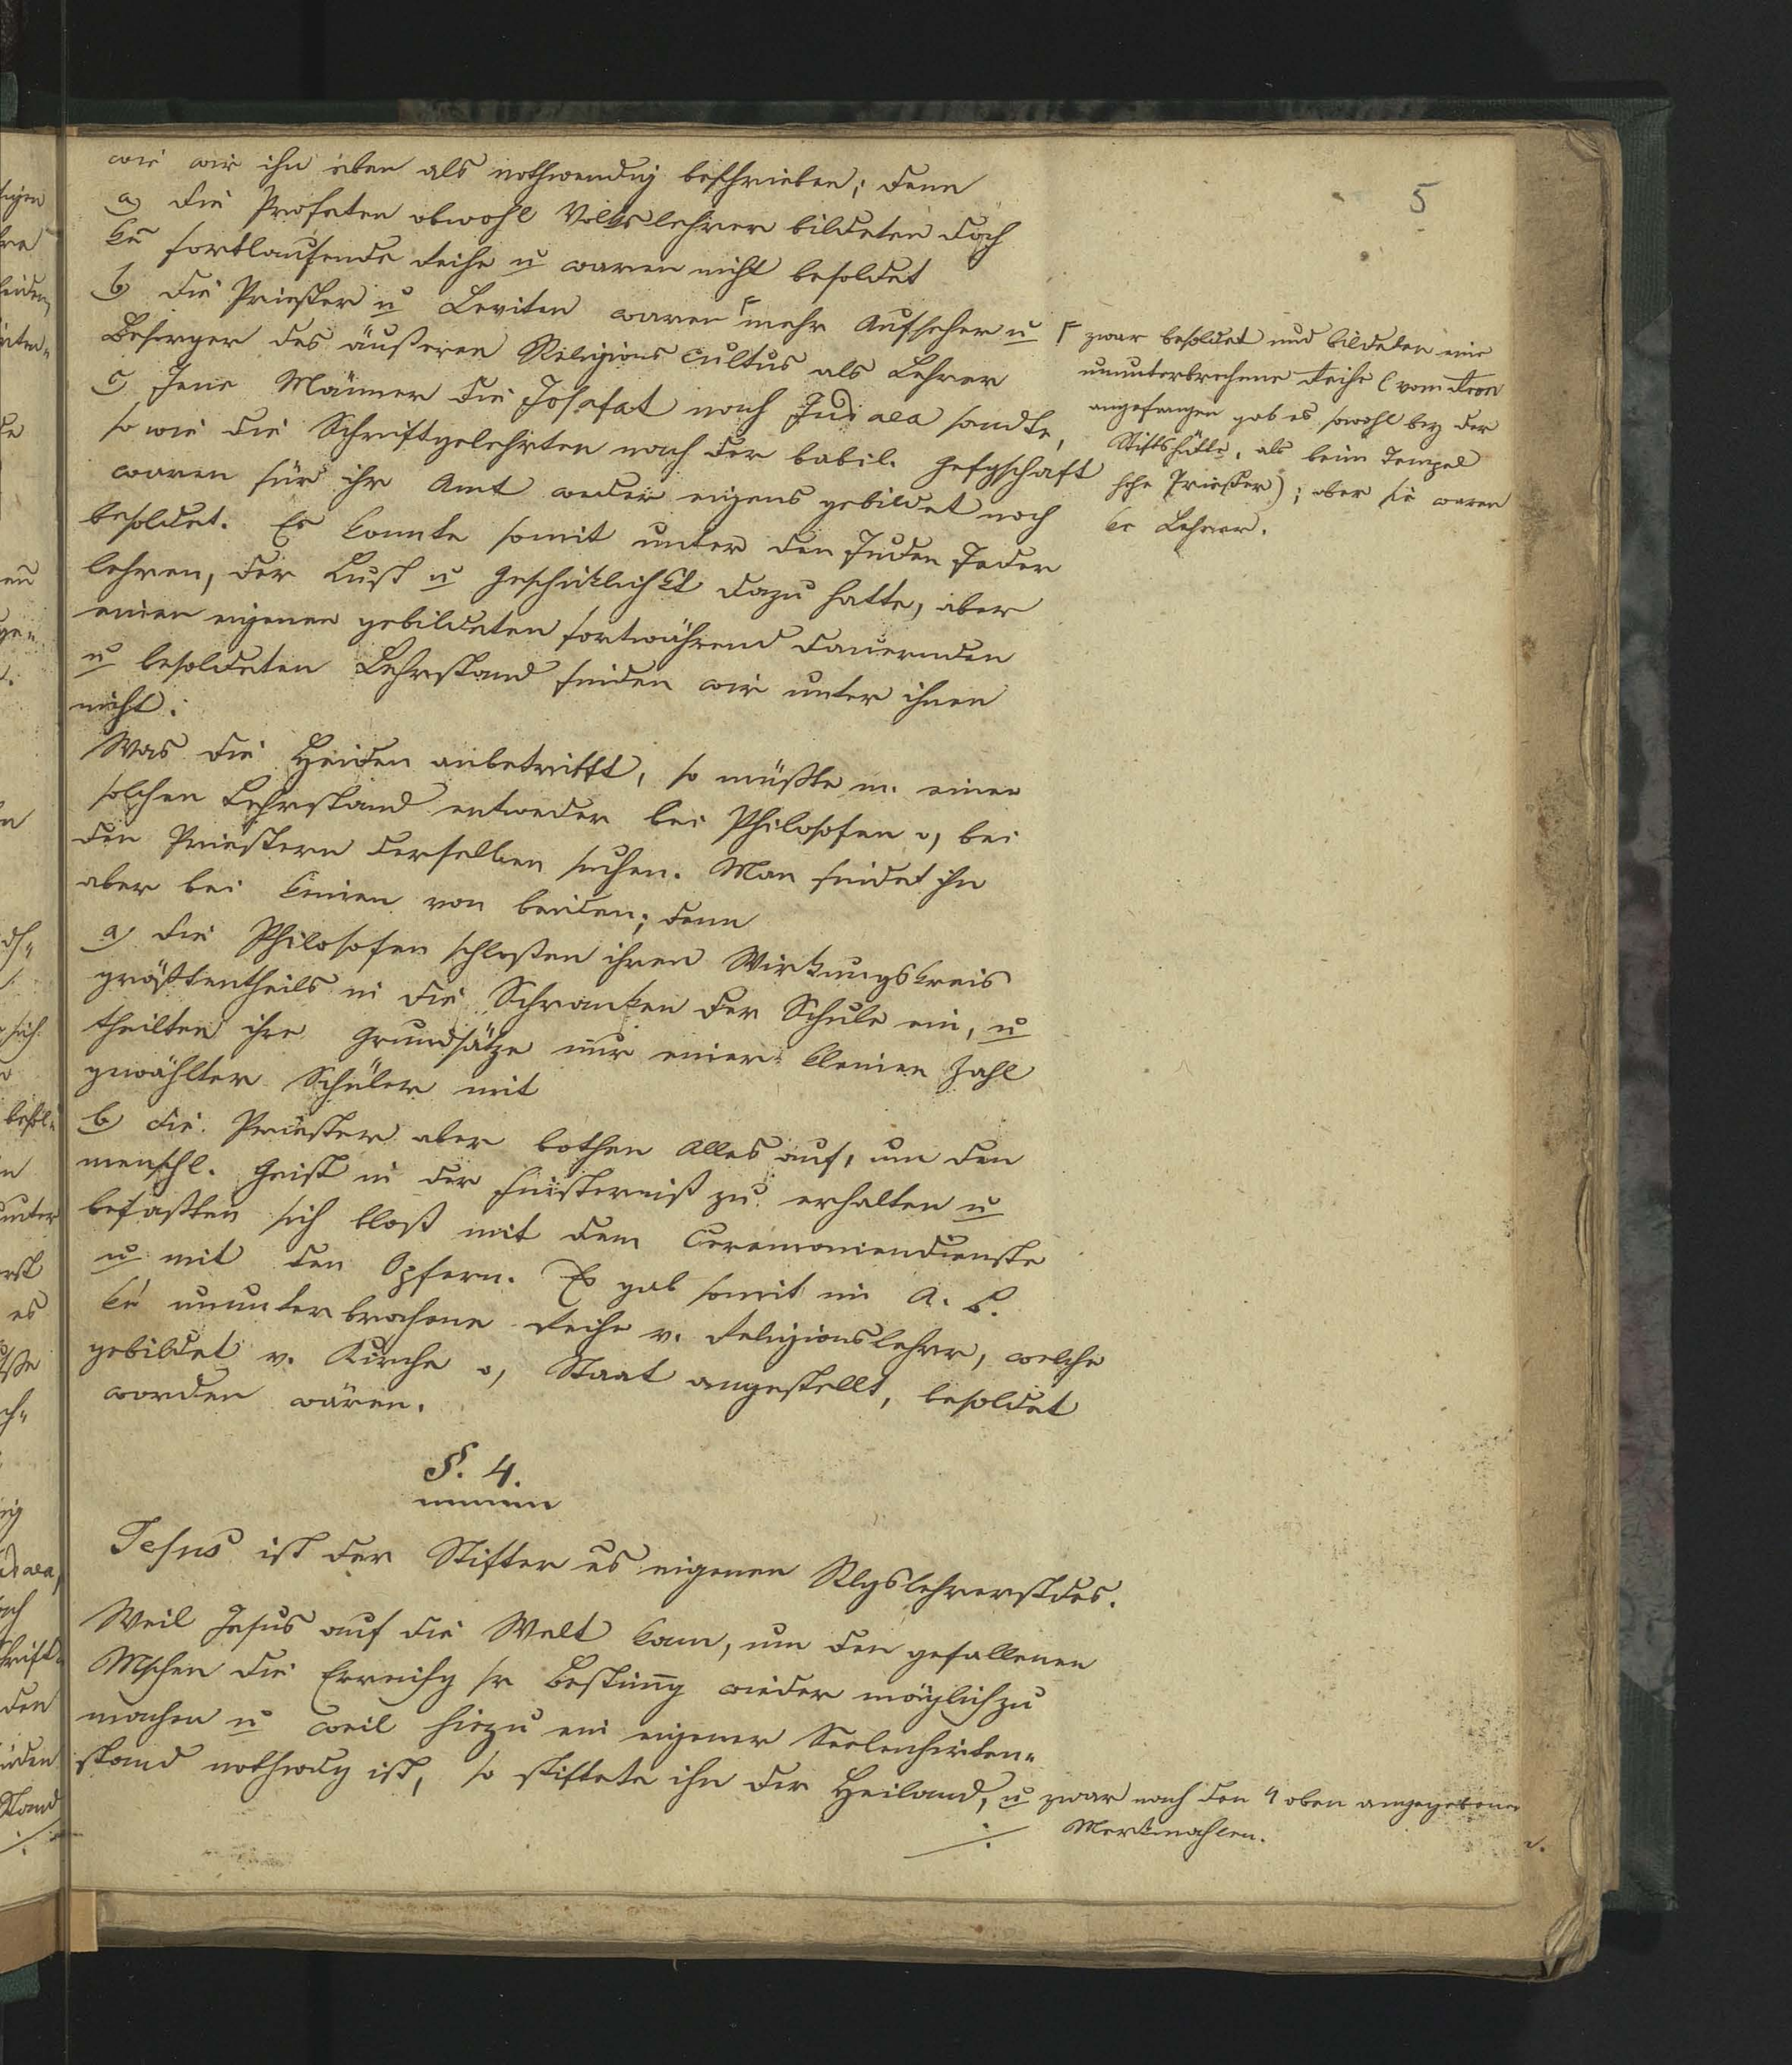 5
wie wir ihn eben als nothwendig beschrieben; denn
a) die Profeten obwohl Volkslehrer bildeten doch
ke fortlaufende Reihe u waren nicht besoldet
b) die Priester u Leviten waren ⌈mehr Aufseher u
Besorger des äußeren Religions cultus als Lehrer
c) Jene Männer die Josafat nach Judaea sandte,
so wie die Schriftgelehrten nach der babil. Gefgschaft
waren für ihr Amt weder eigens gebildet noch
besoldet. Es konnte somit unter den Juden Jeder
lehren, der Lust u Geschiklichkt dazu hatte, aber
einen eigenen gebildeten fortwährend dauernden
u besoldeten Lehrstand finden wir unter ihnen
nicht.
⌈ zwar besoldet und bildeten eine
ununterbrochene Reihe (vom Aron
angefangen gab es sowohl bey der
Stiftshütte, als beim Tempel
hohe Priester); aber sie waren
ke Lehrer.
Was die Heiden anbetrifft, so müßte m. einen
solchen Lehrstand entweder bei Philosofen o, bei
den Priestern derselben suchen. Man findet ihn
aber bei keinen von beiden; denn
a) die Philosofen schloßen ihren Wirkungskreis
größtentheils in die Schranken der Schule ein, u
theilten ihre Grundsätze nur einer kleinen Zahl
gewählter Schüler mit
b) die Priester aber bothen Alles auf, um den
menschl. Geist in der Finsterniß zu erhalten u
befaßten sich bloß mit dem Ceremoniendienste
u mit den Opfern. Es gab somit im A. B.
ke ununterbrochene Reihe v. Religionslehrer, welche
gebildet v. Kirche o, Staat angestellt, besoldet
worden wären.
§. 4.
Jesus ist der Stifter es eigenen Rlgslehrerstdes.
Weil Jesus auf die Welt kam, um den gefallenen
Mschen die Erreichg sr Bestimg wieder möglich zu
machen u weil hiezu ein eigener Seelenhirten-
stand nothwdg ist, so stiftete ihn der Heiland, u zwar nach den 4 oben angegebenen
Merkmahlen.